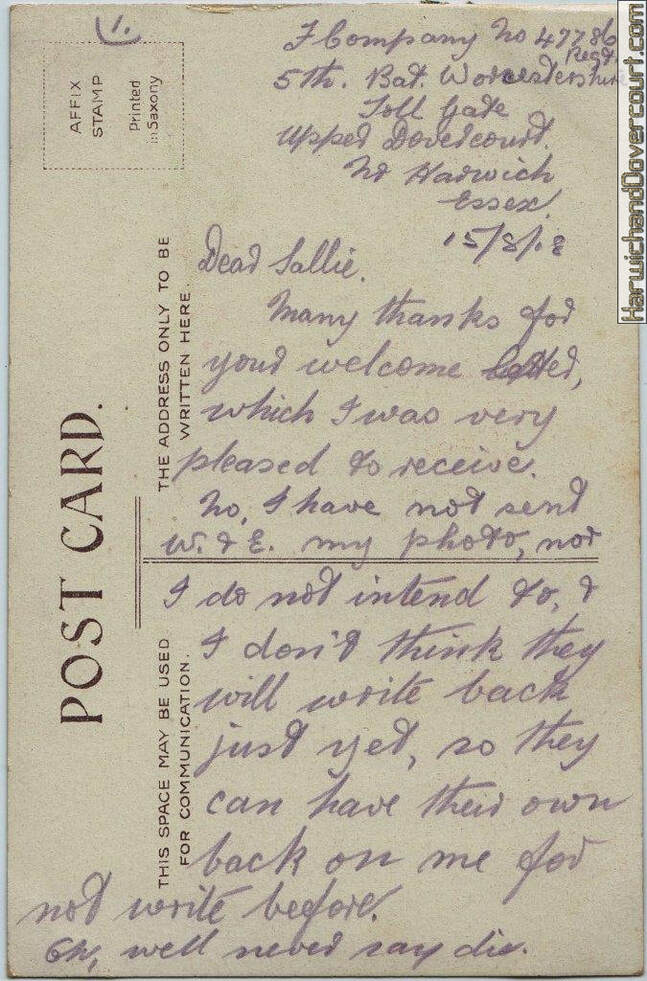 1.
F Company No 47786
5th. Bat. Worcestershire Regt.
Toll Gate
Upper Dovercourt.
Nr Harwich
Essex.
15/8/18
Dear Sallie.
Many thanks for
your welcome letter,
which I was very
pleased to receive.
No, I have not sent
W. & E. my photo, nor
I do not intend to, &
I don't think they
will write back
just yet, so they
can have their own
back on me for
not write before.
Oh, well never say die.
AFFIX
STAMP
Printed
in Saxony
THE ADDRESS ONLY TO BE
WRITTEN HERE.
POST CARD.
THIS SPACE MAY BE USED
FOR COMMUNICATION.
HarwichandDovercourt.com